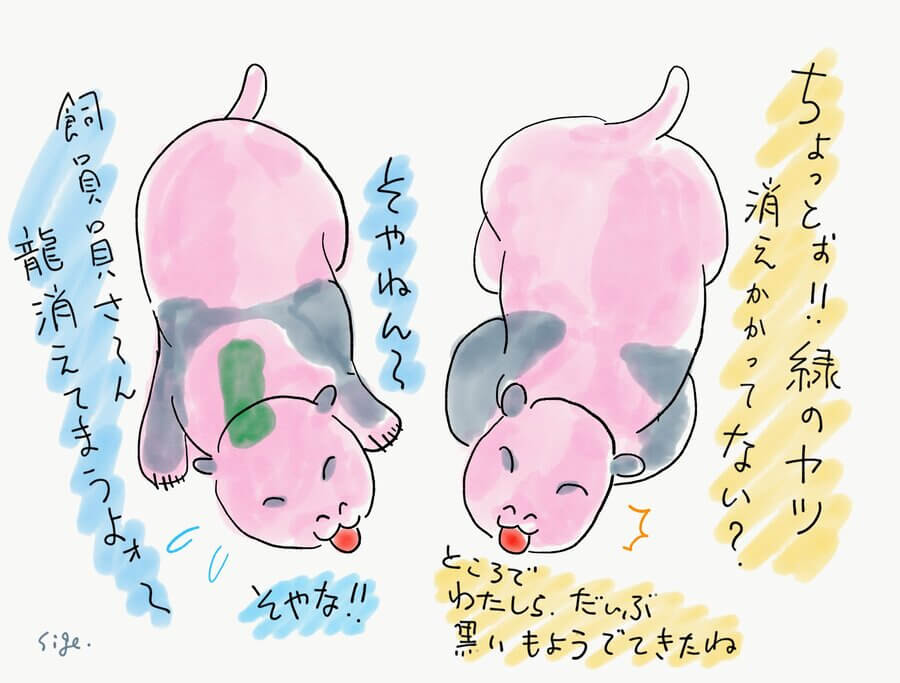 ちょっとぉ!!緑のヤツ
消えかかってない?
そやねん〜
飼員員さ〜ん
龍消えてまうよォ〜
ところで
わたしら、だいぶ
黒いもようでてきたね
そやな!!
Sige.